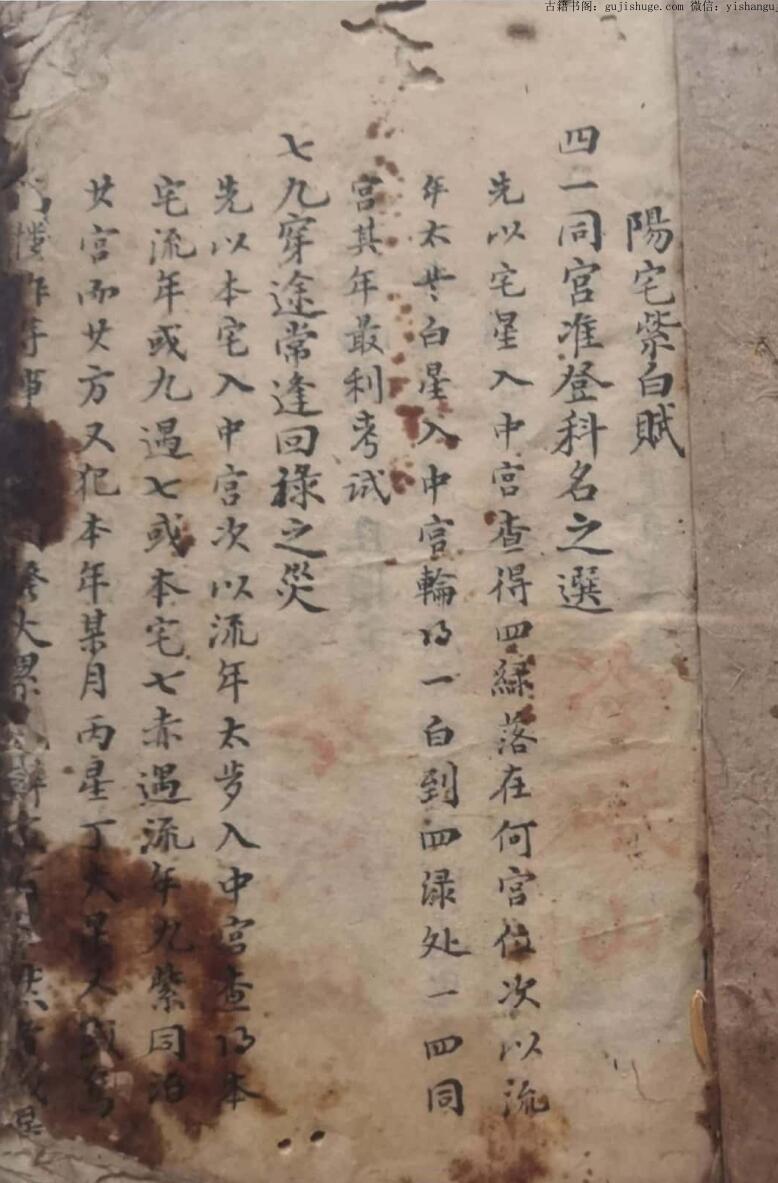 古籍书阁：gujishuge.com 微信：yishangu
陽宅紫白賦
四一同宮准登科名之選
先以宅星入中宮查得四緑落在何宮位次以流
年太岁白星入中宮輪得一白到四渌处一四同
宮其年最利考试
七九穿途常逢回祿之災
先以本宅入中宮次以流年太步入中宮查得本
宅流年或九遇七或本宅七赤遇流年九紫同泊
廿宮而廿方又犯本年某月丙星丁火星
大累